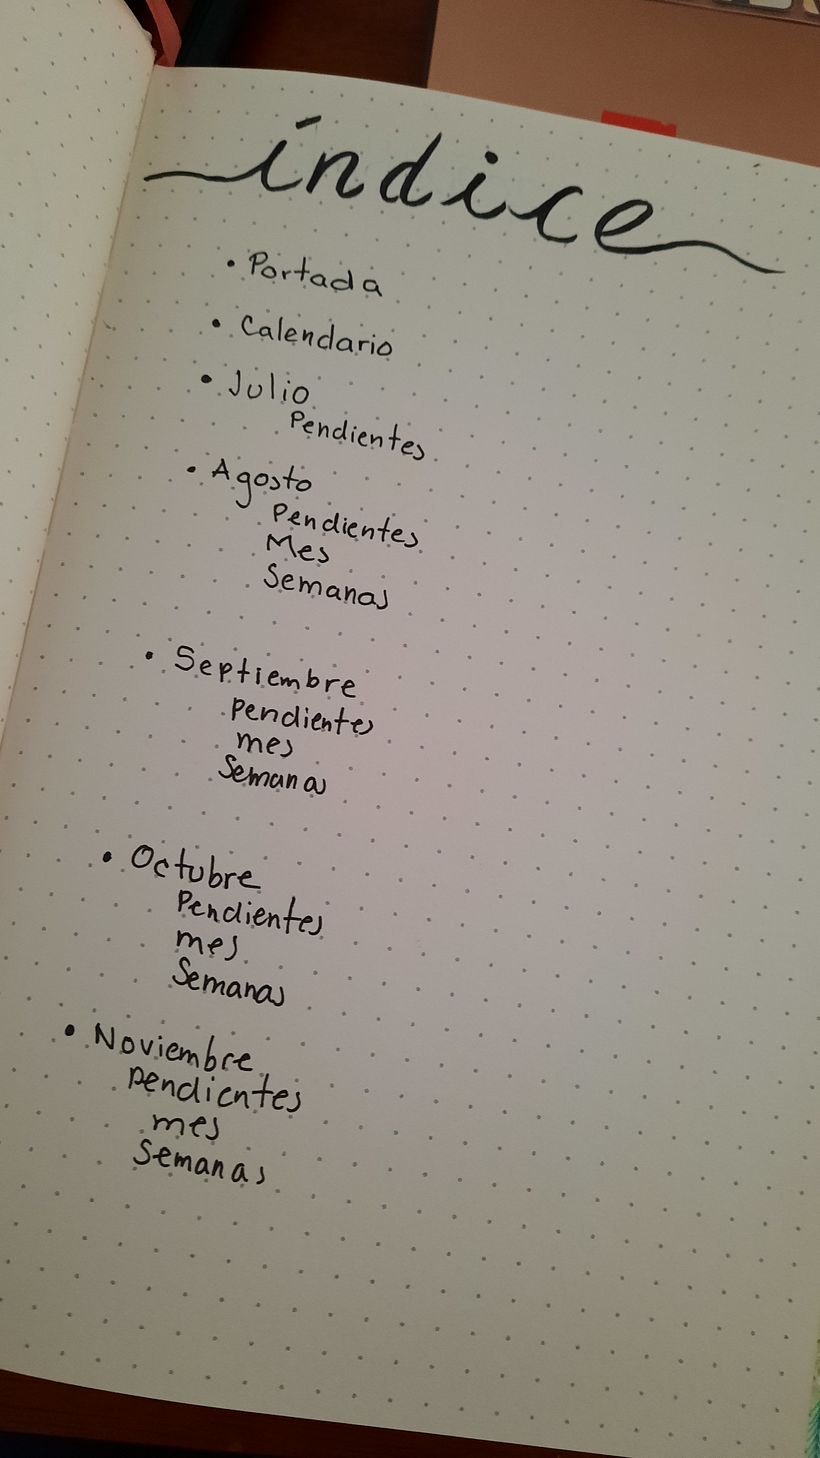 índice
• Portada
• Calendario
• Julio
Pendientes
• Agosto
Pendientes
Mes
Semanas
• Septiembre
pendientes
mes
Semanas
• Octubre
Pendientes
mes
Semanas
• Noviembre
pendientes
mes
Semanas